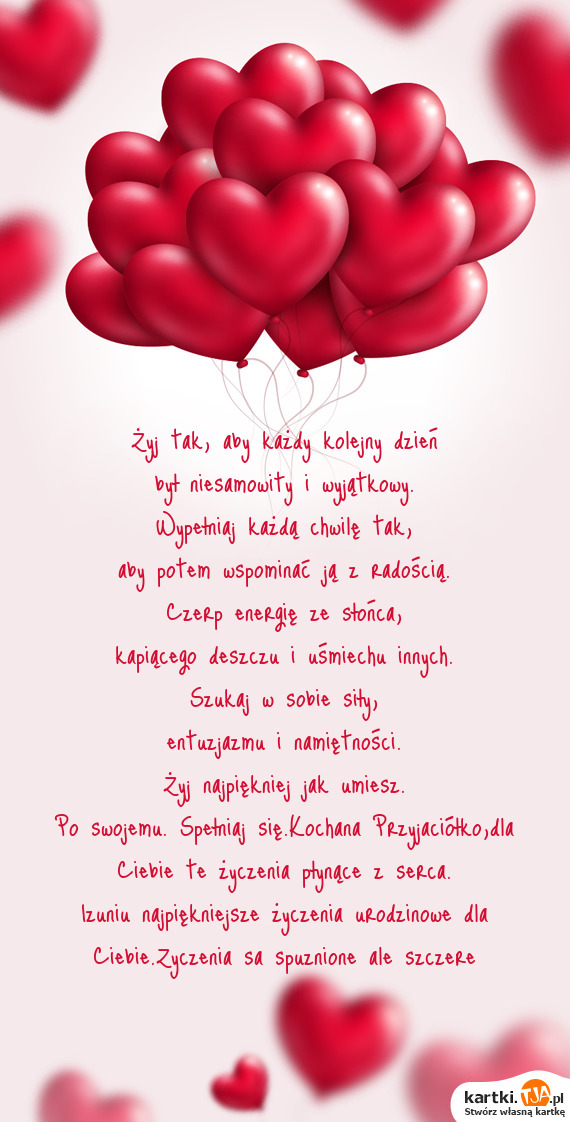 Żyj tak, aby każdy kolejny dzień
był niesamowity i wyjątkowy.
Wypełniaj każdą chwilę tak,
aby potem wspominać ją z radością.
Czerp energię ze słońca,
kapiącego deszczu i uśmiechu innych.
Szukaj w sobie siły,
entuzjazmu i namiętności.
Żyj najpiękniej jak umiesz.
Po swojemu. Spełniaj się.Kochana Przyjaciółko,dla
Ciebie te życzenia płynące z serca.
Izuniu najpiękniejsze życzenia urodzinowe dla
Ciebie.Zyczenia sa spuznione ale szczere
kartki.TJA.pl
Stwórz własną kartkę